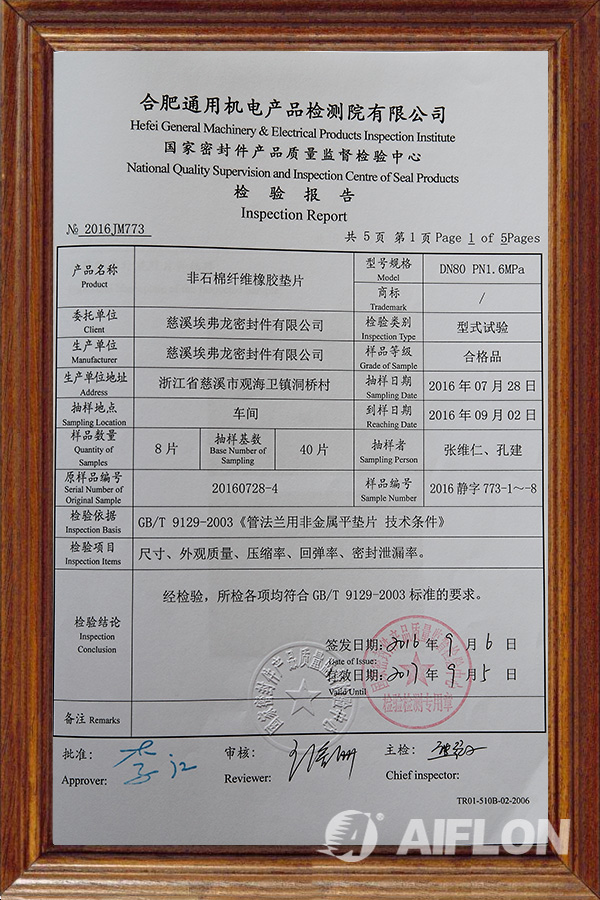 合肥通用机电产品检测院有限公司
Hefei General Machinery & Electrical Products Inspection Institute
国家密封件产品质量监督检验中心
National Quality Supervision and Inspection Centre of Seal Products
检验报告
Inspection Report
№ 2016JM773
共 5 页 第 1 页 Page 1 of 5Pages
产品名称 Product 非石棉纤维橡胶垫片 型号规格 Model DN80 PN1.6MPa
商标 Trademark /
委托单位 Client 慈溪埃弗龙密封件有限公司 检验类别 Inspection Type 型式试验
生产单位 Manufacturer 慈溪埃弗龙密封件有限公司 样品等级 Grade of Sample 合格品
生产单位地址 Address 浙江省慈溪市观海卫镇洞桥村 抽样日期 Sampling Date 2016 年 07 月 28 日
抽样地点 Sampling Location 车间 到样日期 Reaching Date 2016 年 09 月 02 日
样品数量 Quantity of Samples 8 片 抽样基数 Base Number of Sampling 40 片 抽样者 Sampling Person 张维仁、孔建
原样品编号 Serial Number of Original Sample 20160728-4 样品编号 Sample Number 2016 静字 773-1～-8
检验依据 Inspection Basis GB/T 9129-2003《管法兰用非金属平垫片 技术条件》
检验项目 Inspection Items 尺寸、外观质量、压缩率、回弹率、密封泄漏率。
检验结论 Inspection Conclusion 经检验，所检各项均符合 GB/T 9129-2003 标准的要求。
签发日期: 2016 年 9 月 6 日
Date of Issue:
有效日期: 2017 年 9 月 5 日
Valid Until
检验检测专用章
备注 Remarks
批准: 审核: 主检:
Approver: Reviewer: Chief inspector:
TR01-510B-02-2006
AIFLON